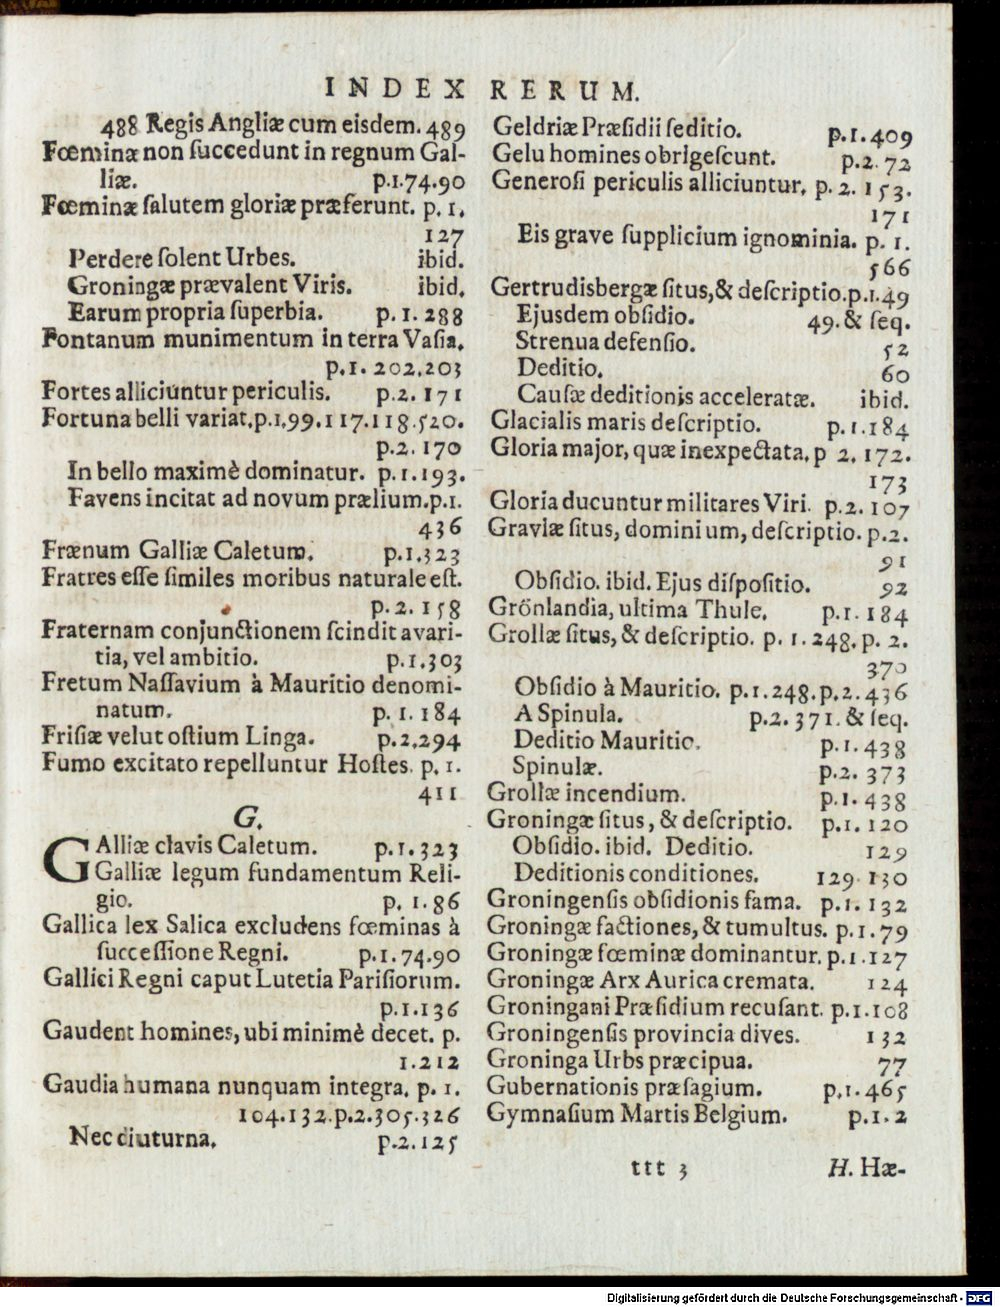 INDEX RERUM.
488 Regis Angliæ cum eisdem. 489
Fœminæ non ſuccedunt in regnum Gal-
liæ. p.1.74.90
Fœminæ ſalutem gloriæ præferunt. p. 1.
127
Perdere ſolent Urbes. ibid.
Groningæ prævalent Viris. ibid.
Earum propria ſuperbia. p. 1. 288
Fontanum munimentum in terra Vaſia.
p.1. 202.203
Fortes alliciuntur periculis. p.2. 171
Fortuna belli variat.p.1.99.117.118.520.
p.2. 170
In bello maximè dominatur. p.1.193.
Favens incitat ad novum prælium.p.1.
436
Frænum Galliæ Caletum. p.1.323
Fratres eſſe ſimiles moribus naturale eſt.
p.2. 158
Fraternam conjunctionem ſcindit avari-
tia, vel ambitio. p.1.303
Fretum Naſſavium à Mauritio denomi-
natum. p. 1. 184
Friſiæ velut oſtium Linga. p.2.294
Fumo excitato repelluntur Hoſtes. p. 1.
411
G.
GAlliæ clavis Caletum. p.1.323
Galliæ legum fundamentum Reli-
gio. p. 1.86
Gallica lex Salica excludens fœminas à
ſucceſſione Regni. p.1.74.90
Gallici Regni caput Lutetia Pariſiorum.
p.1.136
Gaudent homines, ubi minimè decet. p.
1.212
Gaudia humana nunquam integra. p. 1.
104.132.p.2.305.326
Nec diuturna. p.2.125
Geldriæ Præſidii ſeditio. p.1.409
Gelu homines obrigeſcunt. p.2.72
Generoſi periculis alliciuntur. p. 2. 153.
171
Eis grave ſupplicium ignominia. p. 1.
566
Gertrudisbergæ ſitus,& deſcriptio.p.1.49
Ejusdem obſidio. 49. & ſeq.
Strenua defenſio. 52
Deditio. 60
Cauſæ deditionis acceleratæ. ibid.
Glacialis maris deſcriptio. p.1.184
Gloria major, quæ inexpectata. p 2. 172.
173
Gloria ducuntur militares Viri. p.2. 107
Graviæ ſitus, dominium, deſcriptio. p.2.
91
Obſidio. ibid. Ejus diſpoſitio. 92
Grönlandia, ultima Thule. p.1. 184
Grollæ ſitus, & deſcriptio. p. 1.248. p. 2.
370
Obſidio à Mauritio. p.1.248.p.2.436
A Spinula. p.2. 371. & ſeq.
Deditio Mauritio. p.1.438
Spinulæ. p.2. 373
Grollæ incendium. p.1.438
Groningæ ſitus, & deſcriptio. p.1. 120
Obſidio. ibid. Deditio. 129
Deditionis conditiones. 129.130
Groningenſis obſidionis fama. p.1. 132
Groningæ factiones, & tumultus. p.1.79
Groningæ fœminæ dominantur. p.1.127
Groningæ Arx Aurica cremata. 124
Groningani Præſidium recuſant. p.1.108
Groningenſis provincia dives. 132
Groninga Urbs præcipua. 77
Gubernationis præſagium. p.1.465
Gymnaſium Martis Belgium. p.1.2
ttt 3 H. Hæ-
Digitalisierung gefördert durch die Deutsche Forschungsgemeinschaft - DFG